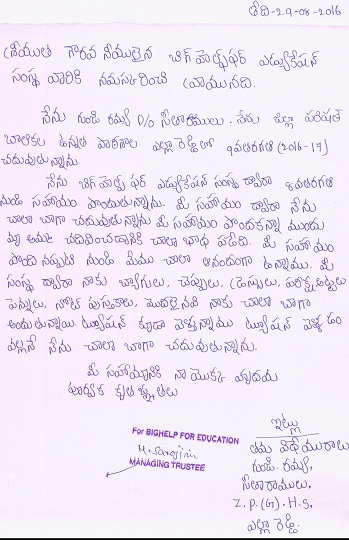 తేది-29-08-2016
శ్రీయుత గౌరవ నీయులైన బిగ్ హెల్ప్ ఫర్ ఎడ్యుకేషన్
సంస్థ వారికి నమస్కరించి వ్రాయునది.
నేను గుండి రమ్య D/o సీతారాములు. నేను జిల్లా పరిషత్
బాలికల ఉన్నత పాఠశాల ఎల్లా రెడ్డిలో 9వతరగతి (2016-17)
చదువుతున్నాను.
నేను బిగ్ హెల్ప్ ఫర్ ఎడ్యుకేషన్ సంస్థ ద్వారా 8వతరగతి
నుండి సహాయం పొందుతున్నాను. మీ సహాయం ద్వారా నేను
చాలా బాగా చదువుతున్నాను మీ సహాయం పొందకన్నా ముందు
మా అమ్మ చదివించడానికి చాలా బాధ పడేది. మీ సహాయం
పొంది నప్పటి నుండి మేము చాలా ఆనందంగా ఉన్నాము. మీ
సంస్థ ద్వారా నాకు బ్యాగులు, చెప్పులు, డ్రెస్సులు, పరీక్ష అట్టలు
పెన్నులు, నోట్ పుస్తకాలు, మొదలైనవి నాకు చాలా బాగా
అందుతున్నాయి ట్యూషన్ కూడా వెళ్తున్నాము ట్యూషన్ వెళ్ళడం
వల్లనే నేను చాలా బాగా చదువుతున్నాను.
మీ సహాయానికి నా యొక్క హృదయ
పూర్వక కృతజ్ఞతలు
ఇట్లు
తమ విధేయురాలు
గుండి. రమ్య,
సీతారాములు,
Z.P.(G).H.S,
ఎల్లా రెడ్డి.
For BIGHELP FOR EDUCATION
M. Sarojini
MANAGING TRUSTEE